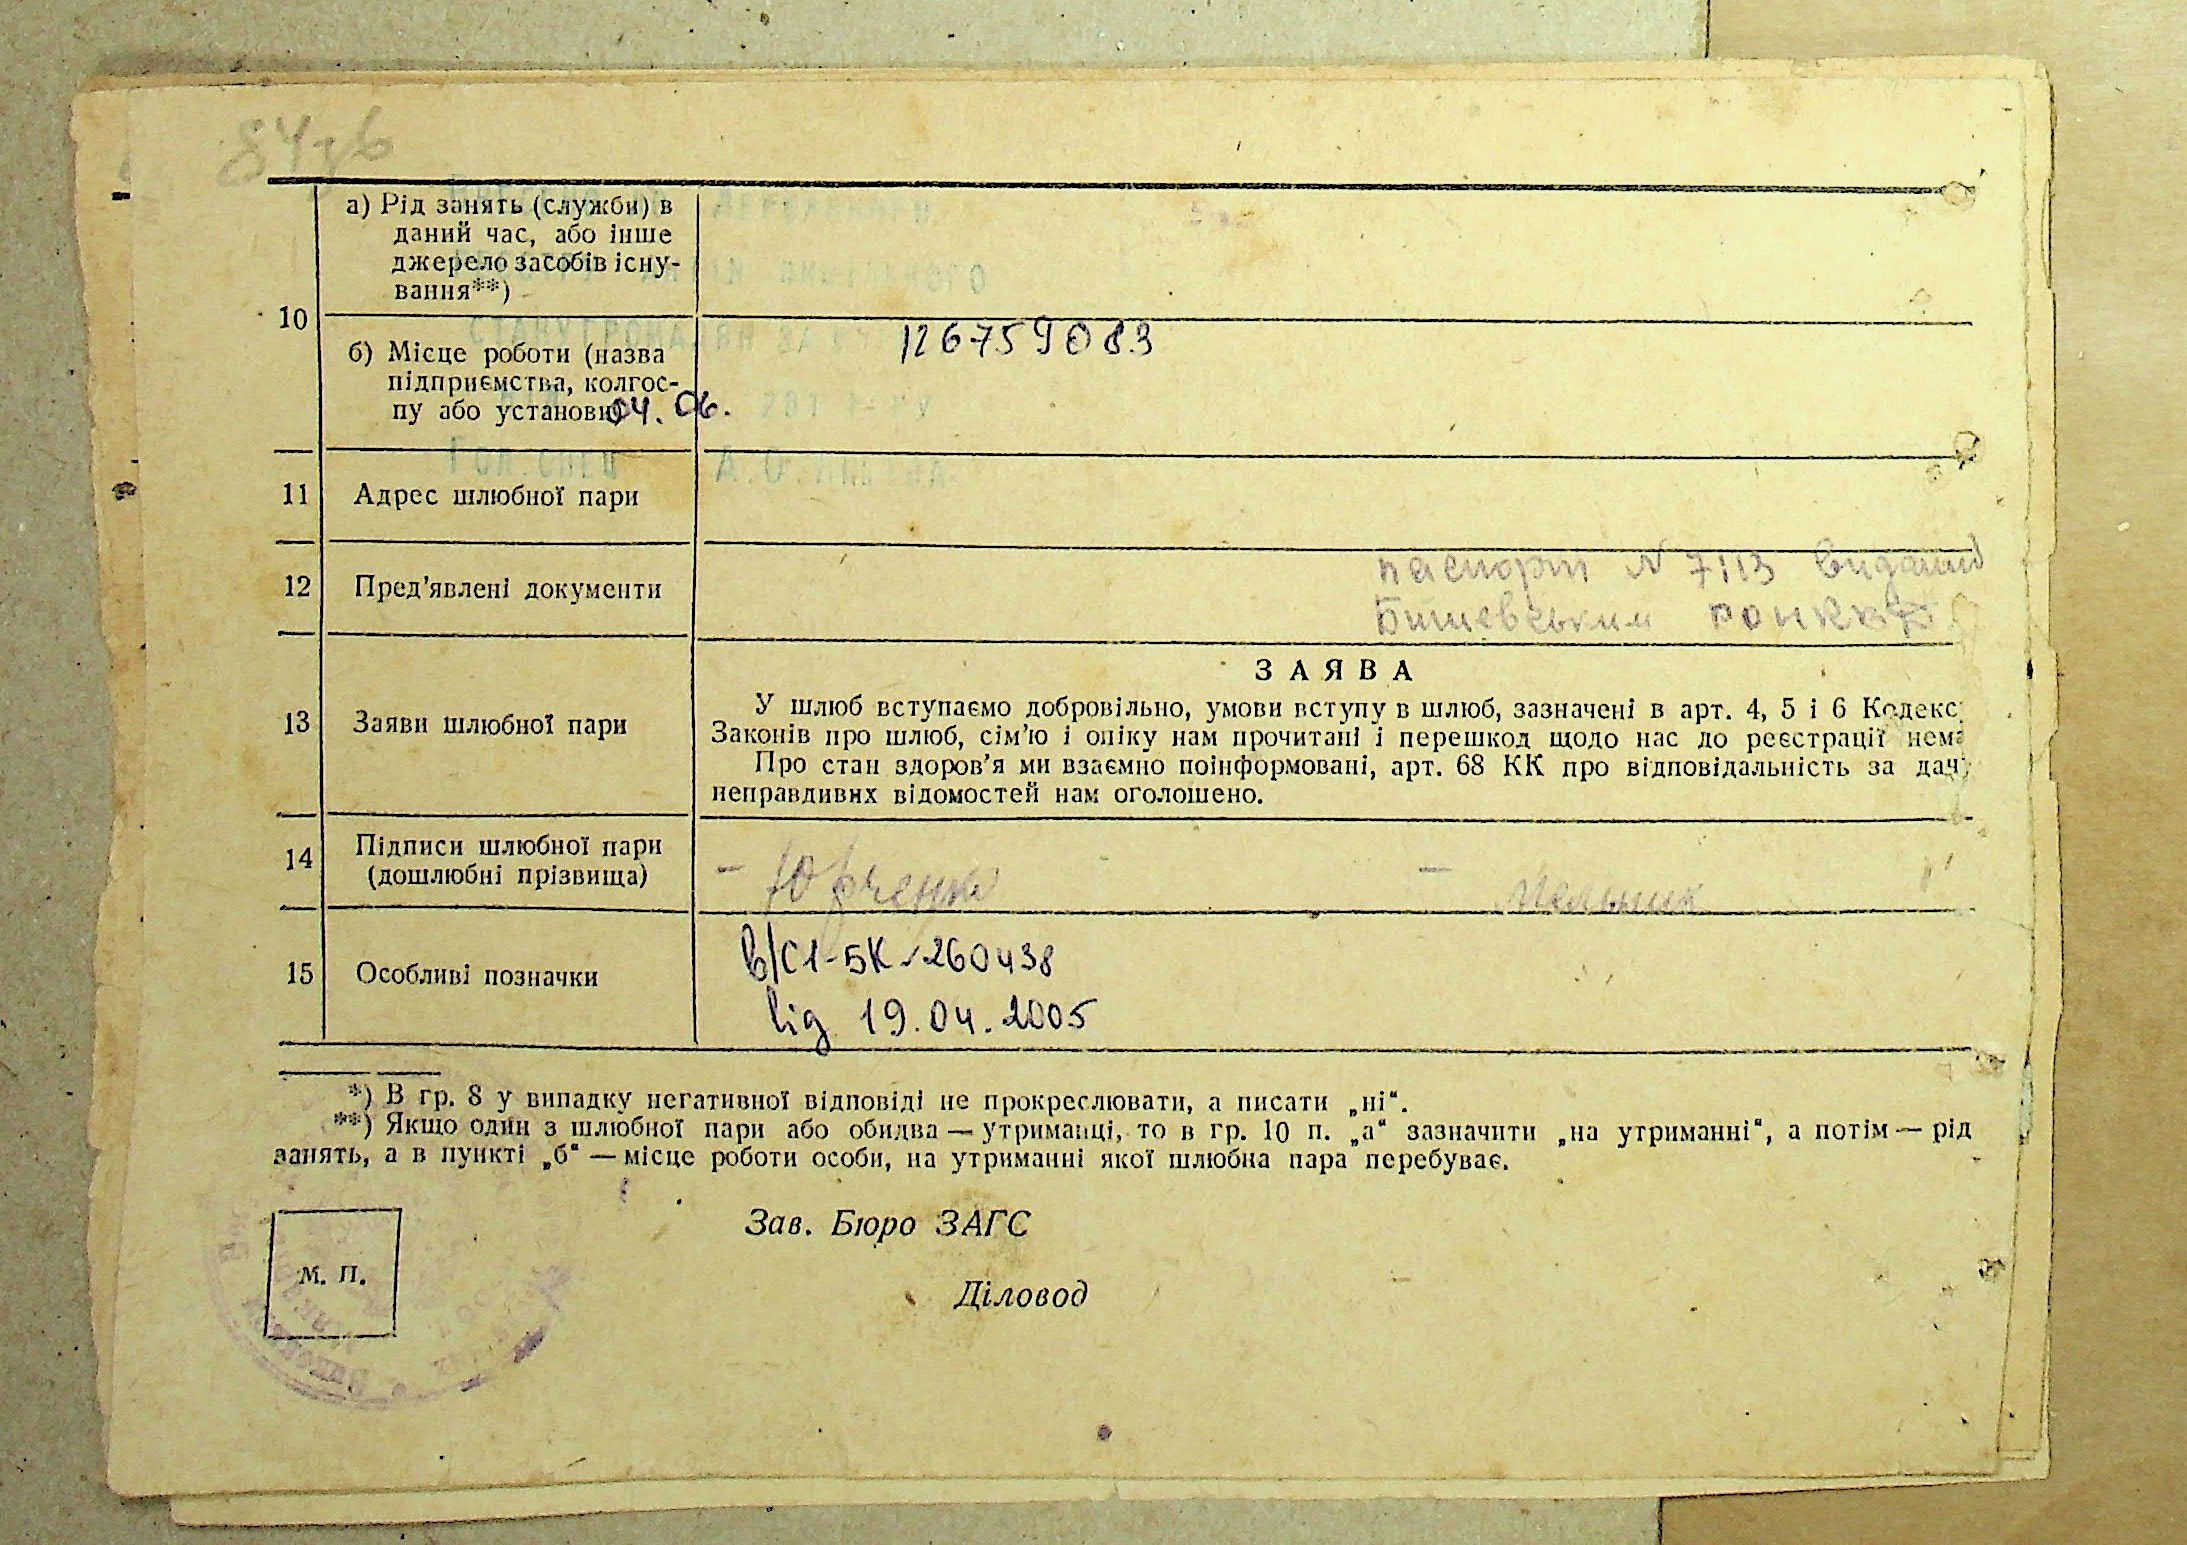 84зв
10
а) Рід занять (служби) в
даний час, або інше
джерело засобів існу-
вання**)
б) Місце роботи (назва
підприємства, колгос-
пу або установи)
126759083
04.06.
11 Адрес шлюбної пари
12 Пред'явлені документи
паспорт N 7113 виданий
Бишевським
13 Заяви шлюбної пари
ЗАЯВА
У шлюб вступаємо добровільно, умови вступу в шлюб, зазначені в арт. 4, 5 і 6 Кодекс
Законів про шлюб, сім'ю і опіку нам прочитані і перешкод щодо нас до реєстрації нема
Про стан здоров'я ми взаємно поінформовані, арт. 68 КК про відповідальність за дач
неправдивих відомостей нам оголошено.
14 Підписи шлюбної пари
(дошлюбні прізвища)
– Юрченко – Мельник
15 Особливі позначки
в/с 1-БК 260438
від 19.04.2005
*) В гр. 8 у випадку негативної відповіді не прокреслювати, а писати „ні“.
**) Якщо один з шлюбної пари або обидва — утриманці, то в гр. 10 п. „а“ зазначити „на утриманні“, а потім — рід
занять, а в пункті „б“ — місце роботи особи, на утриманні якої шлюбна пара перебуває.
Зав. Бюро ЗАГС
М. П.
Діловод